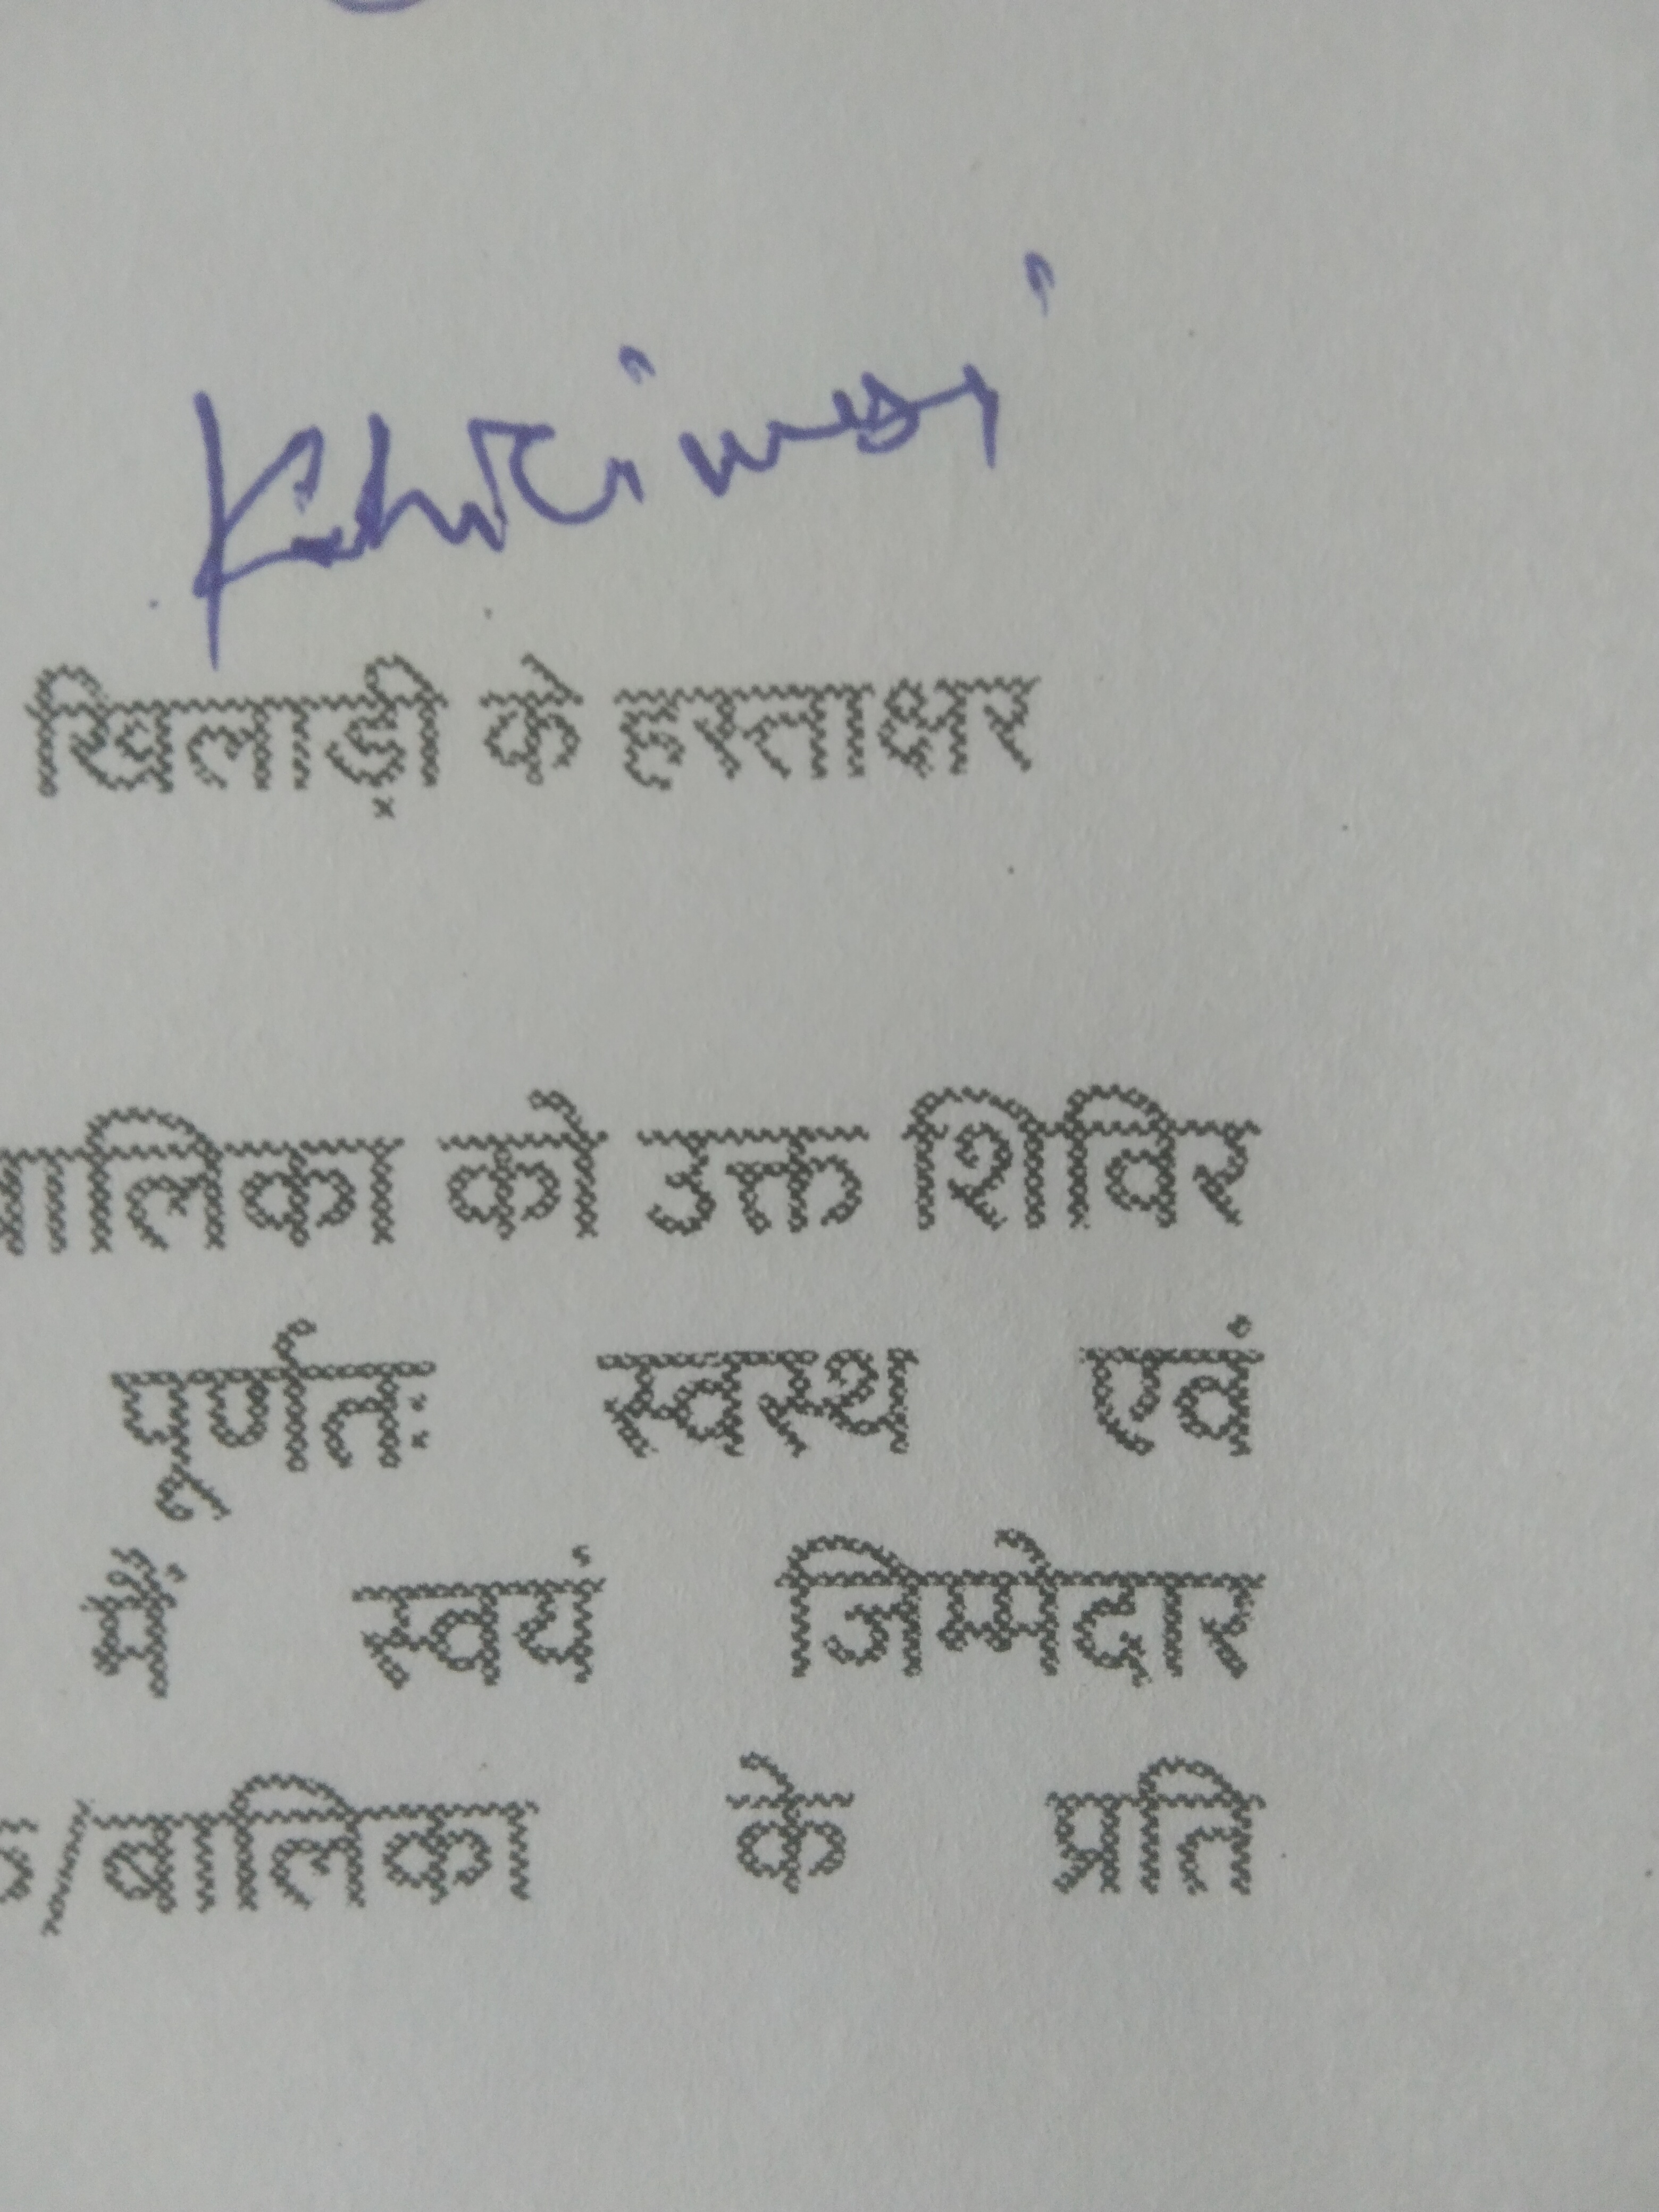 खिलाड़ी के हस्ताक्षर
बालिका को उक्त शिविर
पूर्णतः स्वस्थ एवं
में स्वयं जिम्मेदार
/बालिका के प्रति